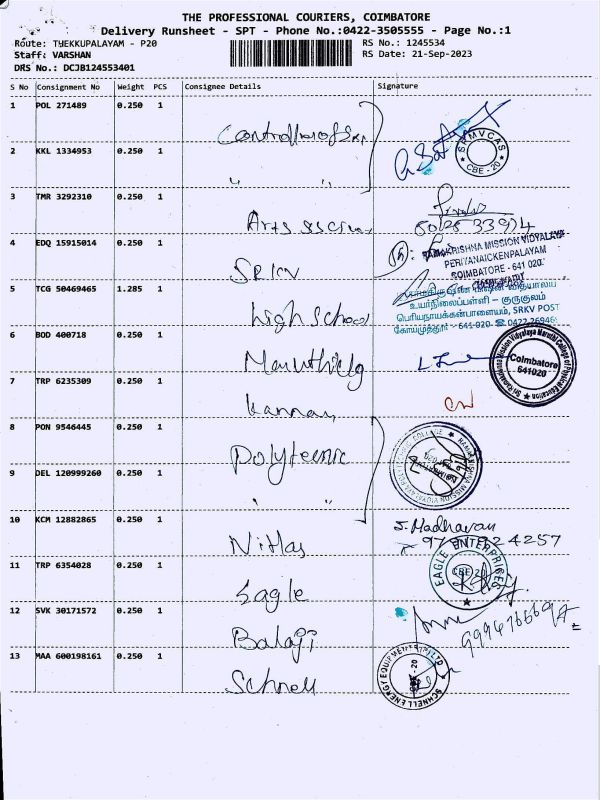 THE PROFESSIONAL COURIERS, COIMBATORE
Delivery Runsheet - SPT - Phone No.:0422-3505555 - Page No.:1
Route: THEKKUPALAYAM - P20
RS No.: 1245534
Staff: VARSHAN
RS Date: 21-Sep-2023
DRS No.: DCJB124553401
S No Consignment No Weight PCS Consignee Details Signature
1 POL 271489 0.250 1
2 KKL 1334953 0.250 1
" "
SRMVCAS
CBE - 20
3 TMR 3292310 0.250 1
Arts
4 EDQ 15915014 0.250 1
SRKV
RAMAKRISHNA MISSION VIDYALAYA
PERIYANAICKENPALAYAM
COIMBATORE - 641 020.
5 TCG 50469465 1.285 1
high school
உயர்நிலைப்பள்ளி - குருகுலம்
பெரியநாயக்கன்பாளையம், SRKV POST
கோயமுத்தூர் - 641 020.
6 BOD 400718 0.250 1
Maruthi
Sri Ramakrishna Mission Vidyalaya Maruthi College of Physical Education
Coimbatore
641020
7 TRP 6235309 0.250 1
Kannan
8 PON 9546445 0.250 1
Polytecnic
9 DEL 120999260 0.250 1
" "
10 KCM 12882865 0.250 1
S. Madhavan
11 TRP 6354028 0.250 1
Eagle
EAGLE ENTERPRISES
CBE-20
12 SVK 30171572 0.250 1
Balaji
13 MAA 600198161 0.250 1
Schnell
SCHNELL ENERGY EQUIPMENTS (P) LTD
CBE - 20